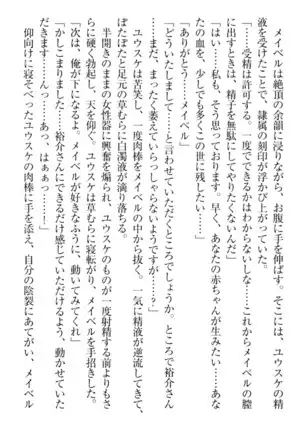 メイベルは絶頂の余韻に浸りながら、お腹に手を伸ばす。そこには、ユウスケの精
液を受けたことで、隷属の刻印が浮かび上がっていた。
「受精は許可する。一度でできるかはわからないしな……これからメイベルの膣
に出すときは、精子を無駄にしてやりたくないんだ」
「はい……私も、そう思っております。早く、あなたの赤ちゃんが生みたい……あな
たの血を、少しでも多くこの世に残したい……」
「ありがとう……メイベル」
「どういたしまして……と言わせていただくところでしょうか。ところで裕介さん、
まだ……まったく萎えていらっしゃらないようですが……？」
ユウスケは苦笑し、一度肉棒をメイベルの中から抜く。一気に精液が逆流してきて、
ぼたぼたと足元の草むらに白濁液が滴り落ちる。
半開きのままの女性器に興奮を煽られ、ユウスケのものが一度射精する前よりもさ
らに硬く勃起し、天を仰ぐ。ユウスケは草むらに寝転がり、メイベルを手招きした。
「次は、俺が下になるよ。メイベルが好きなふうに、動いてみてくれ」
「かしこまりました……裕介さんにできるだけ感じていただけるよう、動かせていた
だきます……あっ、はぁぁっ……！」
仰向けに寝そべったユウスケの肉棒に手を添え、自分の陰裂にあてがい、メイベル